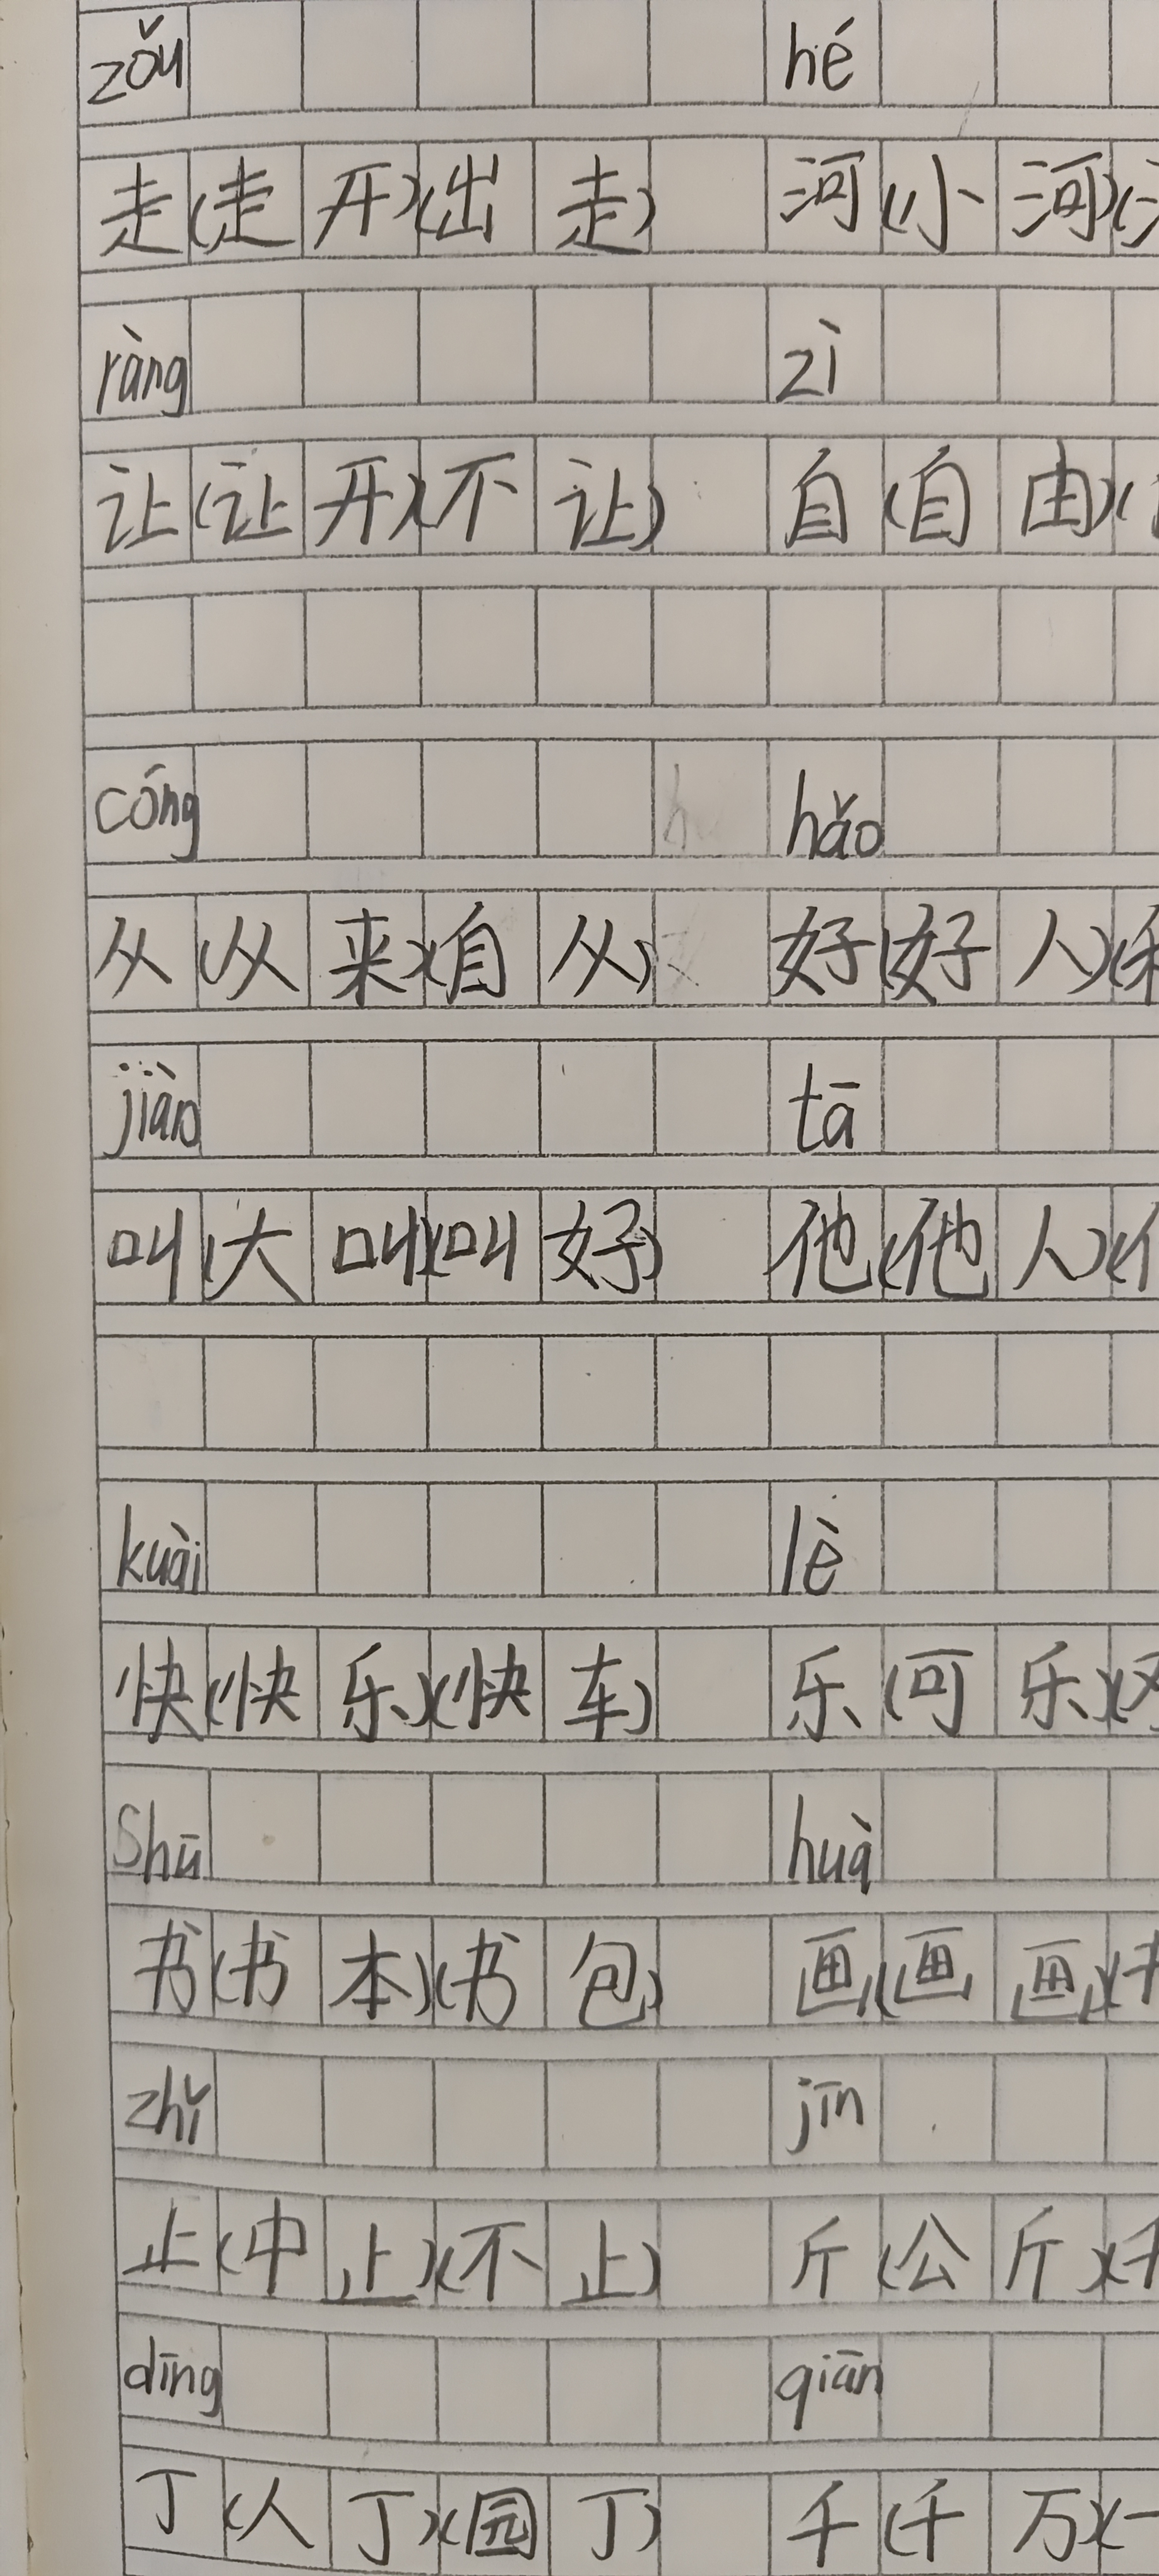 zǒu hé
走(走开)(出走) 河(小河)(
ràng zì
让(让开)(不让) 自(自由)(
cóng hǎo
从(从来)(自从) 好(好人)(
jiào tā
叫(大叫)(叫好) 他(他人)(
kuài lè
快(快乐)(快车) 乐(可乐)(
Shū huà
书(书本)(书包) 画(画画)(
zhǐ jīn
止(中止)(不止) 斤(公斤)(
dīng qiān
丁(人丁)(园丁) 千(千万)(一